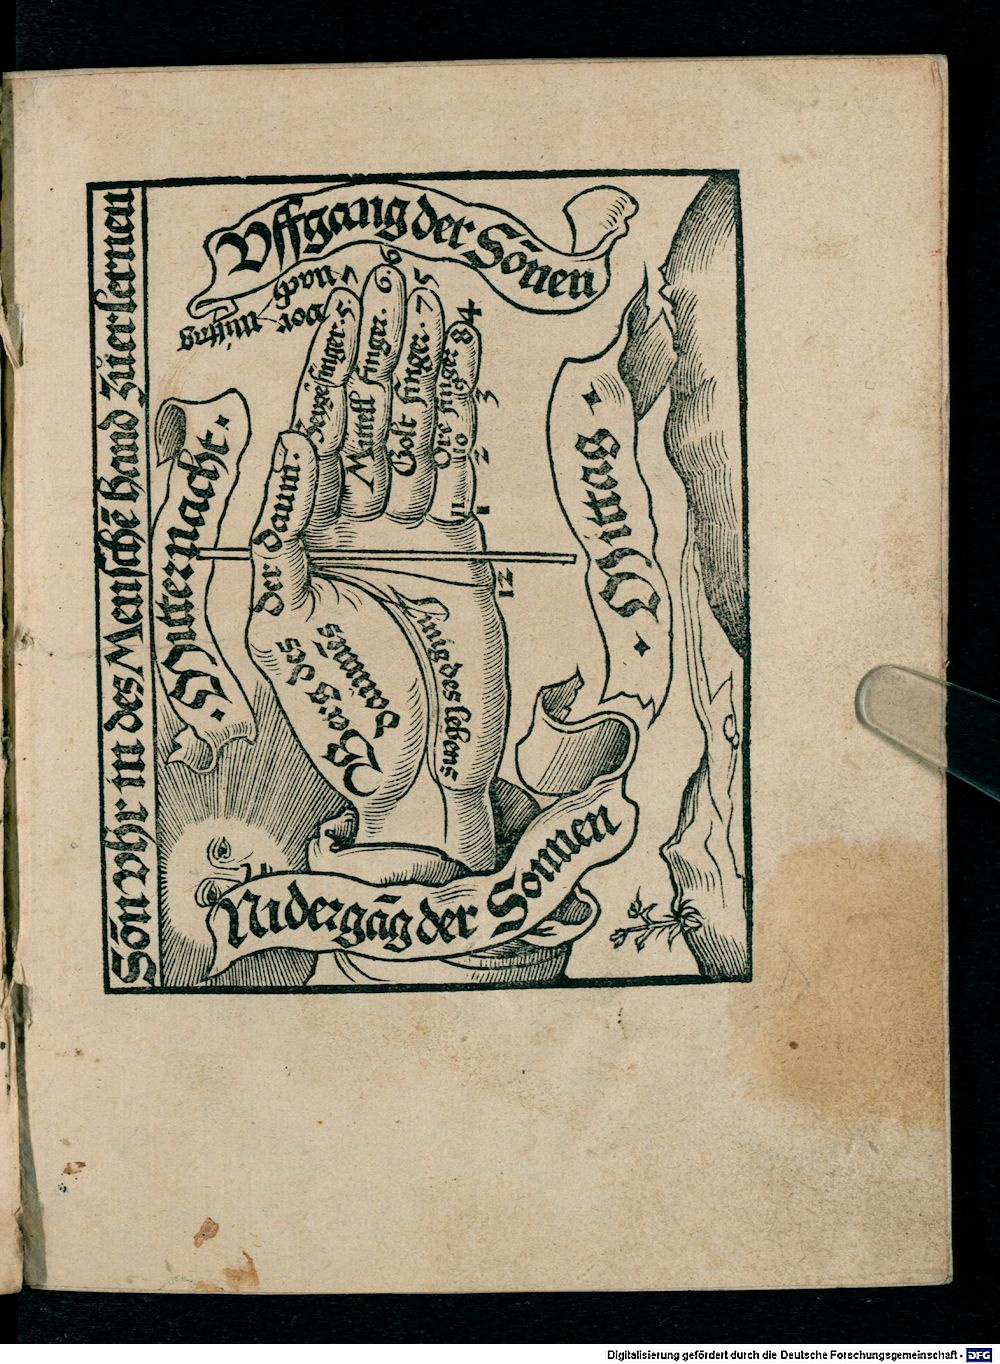 Sōn vhr in des Menschē hand zů erlernen
Vffgang der Sōnen
nach
vor
mittag
Mitternacht
Mittag
Nidergāg der Sonnen
der daum.
Zeigefinger. 5 7
Mittell finger. 6. 6
Golt finger. 7 5
Ore finger 8 4
3
10 2
11 1
12
Berg des
Daumēs
linig des lebens
Digitalisierung gefördert durch die Deutsche Forschungsgemeinschaft - DFG